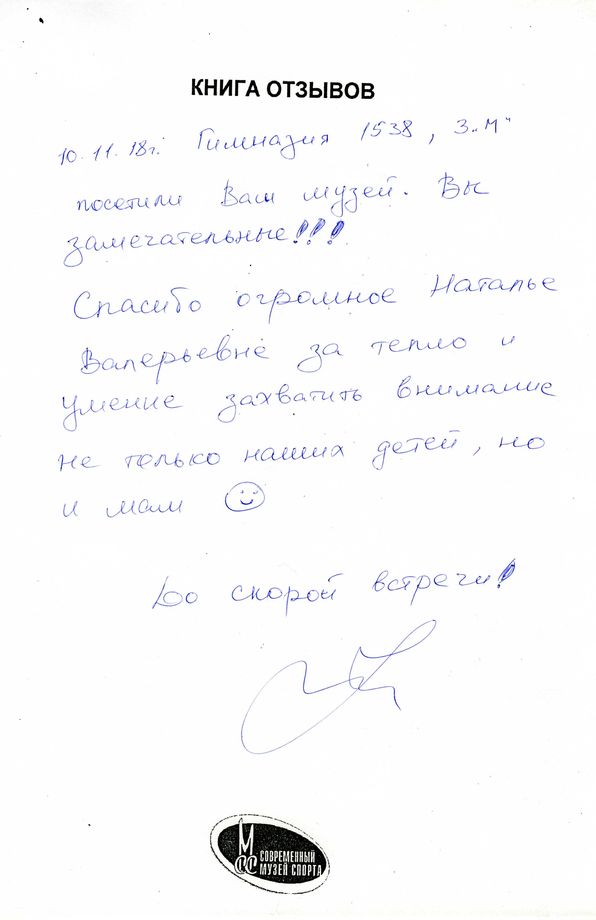 КНИГА ОТЗЫВОВ
10.11.18г. Гимназия 1538, 3 „М"
посетили Ваш музей. Вы
замечательные!!!
Спасибо огромное Наталье
Валерьевне за тепло и
умение захватить внимание
не только наших детей, но
и мам
До скорой встречи!
МСС СОВРЕМЕННЫЙ
МУЗЕЙ СПОРТА